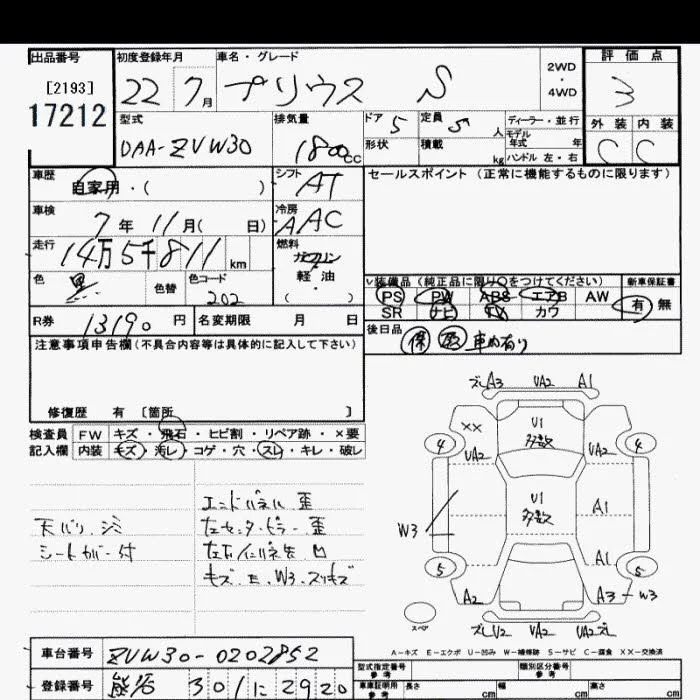 出品番号
[2193]
17212
初度登録年月
22 7月
車名・グレード
プリウス S
2WD
・
4WD
評価点
3
外装 内装
C C
型式
DAA-ZVW30
排気量
1800cc
ドア 5
形状
定員 5人
積載 kg
ディーラー・並行
モデル年式 年
ハンドル 左・右
車歴
自家用・( )
シフト AT
車検
7年11月( 日)
冷房 AAC
走行
14万5千811km
燃料
ガソリン
軽・油
( )
色 黒
色替
色コード 202
R券 13190円
名変期限 月 日
セールスポイント(正常に機能するものに限ります)
装備品(純正品に限り○をつけてください)
PS PW ABS エアB AW
SR ナビ TV カワ
新車保証書
有 無
後日品
保 取 車内有り
注意事項申告欄(不具合内容等は具体的に記入して下さい)
修復歴 有 [箇所 ]
検査員記入欄
FW キズ・飛石・ヒビ割・リペア跡・×要
内装 キズ・汚レ・コゲ・穴・スレ・キレ・破レ
天バリ シミ
シートカバー付
エンドパネル 歪
左センターピラー 歪
左右インパネ 凹
キズ E W3 スリキズ
ズレA3 UA2 A1
XX
UA2
4
U1
多数
UA2
4
W3
U1
多数
A1
A1
5
5
A2
A3-W3
スペア
ズレU2 UA2 UA2ズレ
A-キズ E-エクボ U-凹み W-補修跡 S-サビ C-腐食 XX-交換済
車台番号 ZVW30-0202852
登録番号 熊谷 301 に 2920
型式指定番号 参考
類別区分番号 参考
車庫証明用 参考
長さ cm
幅 cm
高さ cm